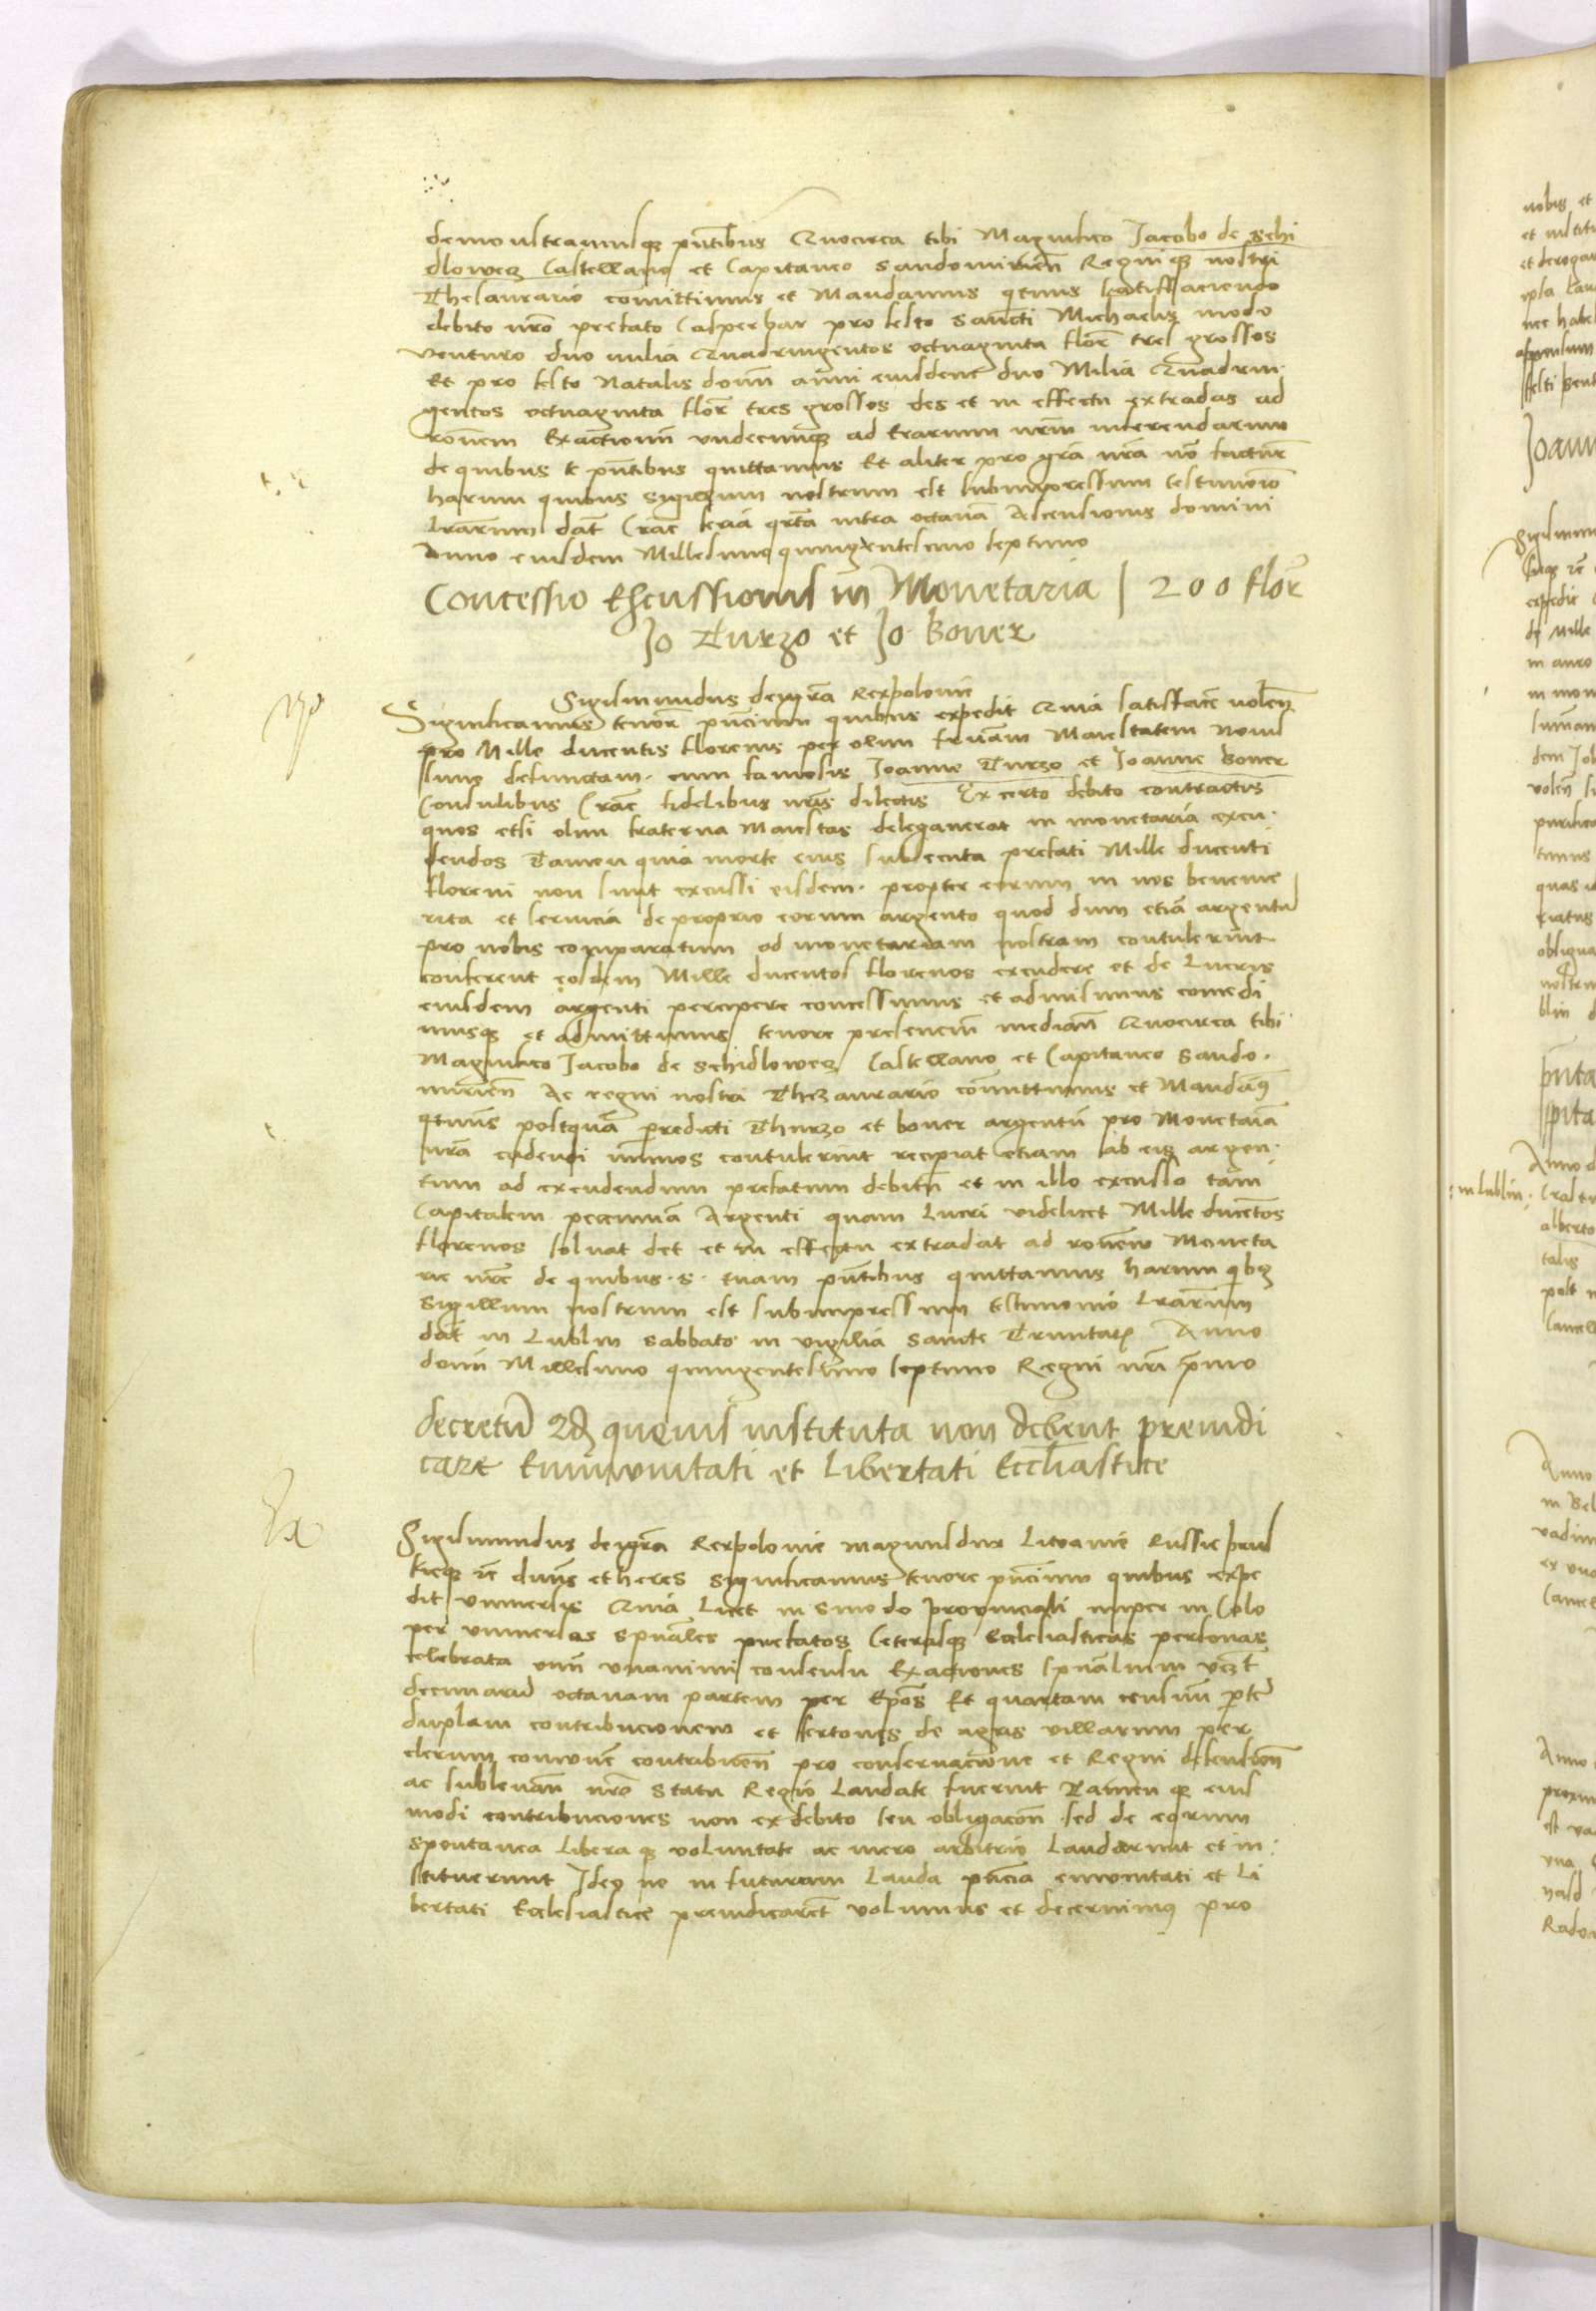 demonstramusq pntibus Quocirca tibi Magnifico Jacobo de Schi
dlowecz Castellano et Capitaneo Sandomirien Regniq nostri
Thesaurario comittimus et Mandamus qtinus satisfaciendo
debito nro prefato Casper bar pro festo Sancti Michaelis modo
venturo duo milia Quadringentos octuaginta flor tres grossos
Et pro festo Natalis domini anni eiusdem duo Milia Quadrin
gentos octuaginta flor tres grossos des et in effectu extradas ad
ronem Exactionum undecunq ad Erarium nrm inferendarum
de quibus te pntibus quittamus Et aliter pro gra nra non factur
harum quibus Sigillum nostrum est subimpressum testimonio
lrarum dat Crac feria qrta intra octauam Ascensionis domini
Anno eiusdem Millesimo quingentesimo septimo
Concessio Excussionis in Monetaria | 200 flor
Jo Turzo et Jo Boner
Sigismundus dei gra Rex polonie
Significamus tenore pncium quibus expedit Quia satisfacere volen
pro Mille ducentis florenis per olim fr̄nam Maiestatem novis
sime defunctam cum famosis Joanne Turzo et Joanne Boner
Consulibus Crac fidelibus nris dilectis Ex certo debito contractis
quos etsi olim fraterna Maiestas deleguerat in monetaria excu
dendos Tamen quia morte eius subsecuta prefati Mille ducenti
floreni non sunt excussi eisdem propter eorum in nos beneme
rita et seruicia de proprio eorum argento quod dum etia argentu
pro nobis comparatum ad monetariam nostram contulerint
conferent eosdem Mille ducentos florenos excudere et de Lucris
eiusdem argenti percipere concessimus et admisimus concedi
musq et admittimus tenore presencium median Quocirca tibi
Magnifico Jacobo de Schidlowecz Castellano et Capitaneo Sando
mirien Ac regni nostri Thezaurario comittimus et Mandam9
qtinus postqua predicti Thurzo et boner argentu pro Monetaria
nra cudendi nummos contulerint recipiat etiam ab eis argen
tum ad excudendum prefatum debitu et in illo excusso tam
Capitalem pecunia Argenti quam Lucri videlicet Mille ducentos
florenos soluat det et in effectu extradat ad ronem Moneta
rie nre de quibus s tuam pntibus quittamus harum qbz
Sigillum nostrum est subimpressum testimonio lrarum
dat in Lublin Sabbato in vigilia Sancte Trinitatis Anno
domi Millesimo quingentesimo septimo Regni nri primo
decretu quevis instituta non debent preiudi
care Emunitati et Libertati Eccliastice
Sigismundus dei gra Rex polonie magnus dux Litwanie Russie prus
sieq et dnus et heres Significamus tenore pncium quibus expe
dit vniuersis Quia Licet in Sinodo prouinciali nuper in Colo
per vniuersas spuales prelatos Ceterasq Ecclesiasticas personas
celebrata vnanimi consensu Exactiones spualium
decimaru octauam partem per Epos Et quartam censuu
duplam contribucionem et fertones de agris villarum per
clerum contribuen pro conseruacione et Regni defension
ac subleuan nro Statu Regio Laudate fuerint Tamen q eius
modi contribuciones non ex debito seu obligacon sed de eorum
spontanea Libera q voluntate ac mero arbitrio Laudarunt et in
stituerunt Ideo ne in futurum Lauda pncia emunitati et Li
bertati Ecclesiastice preiudicaret volumus et decernim9 pro